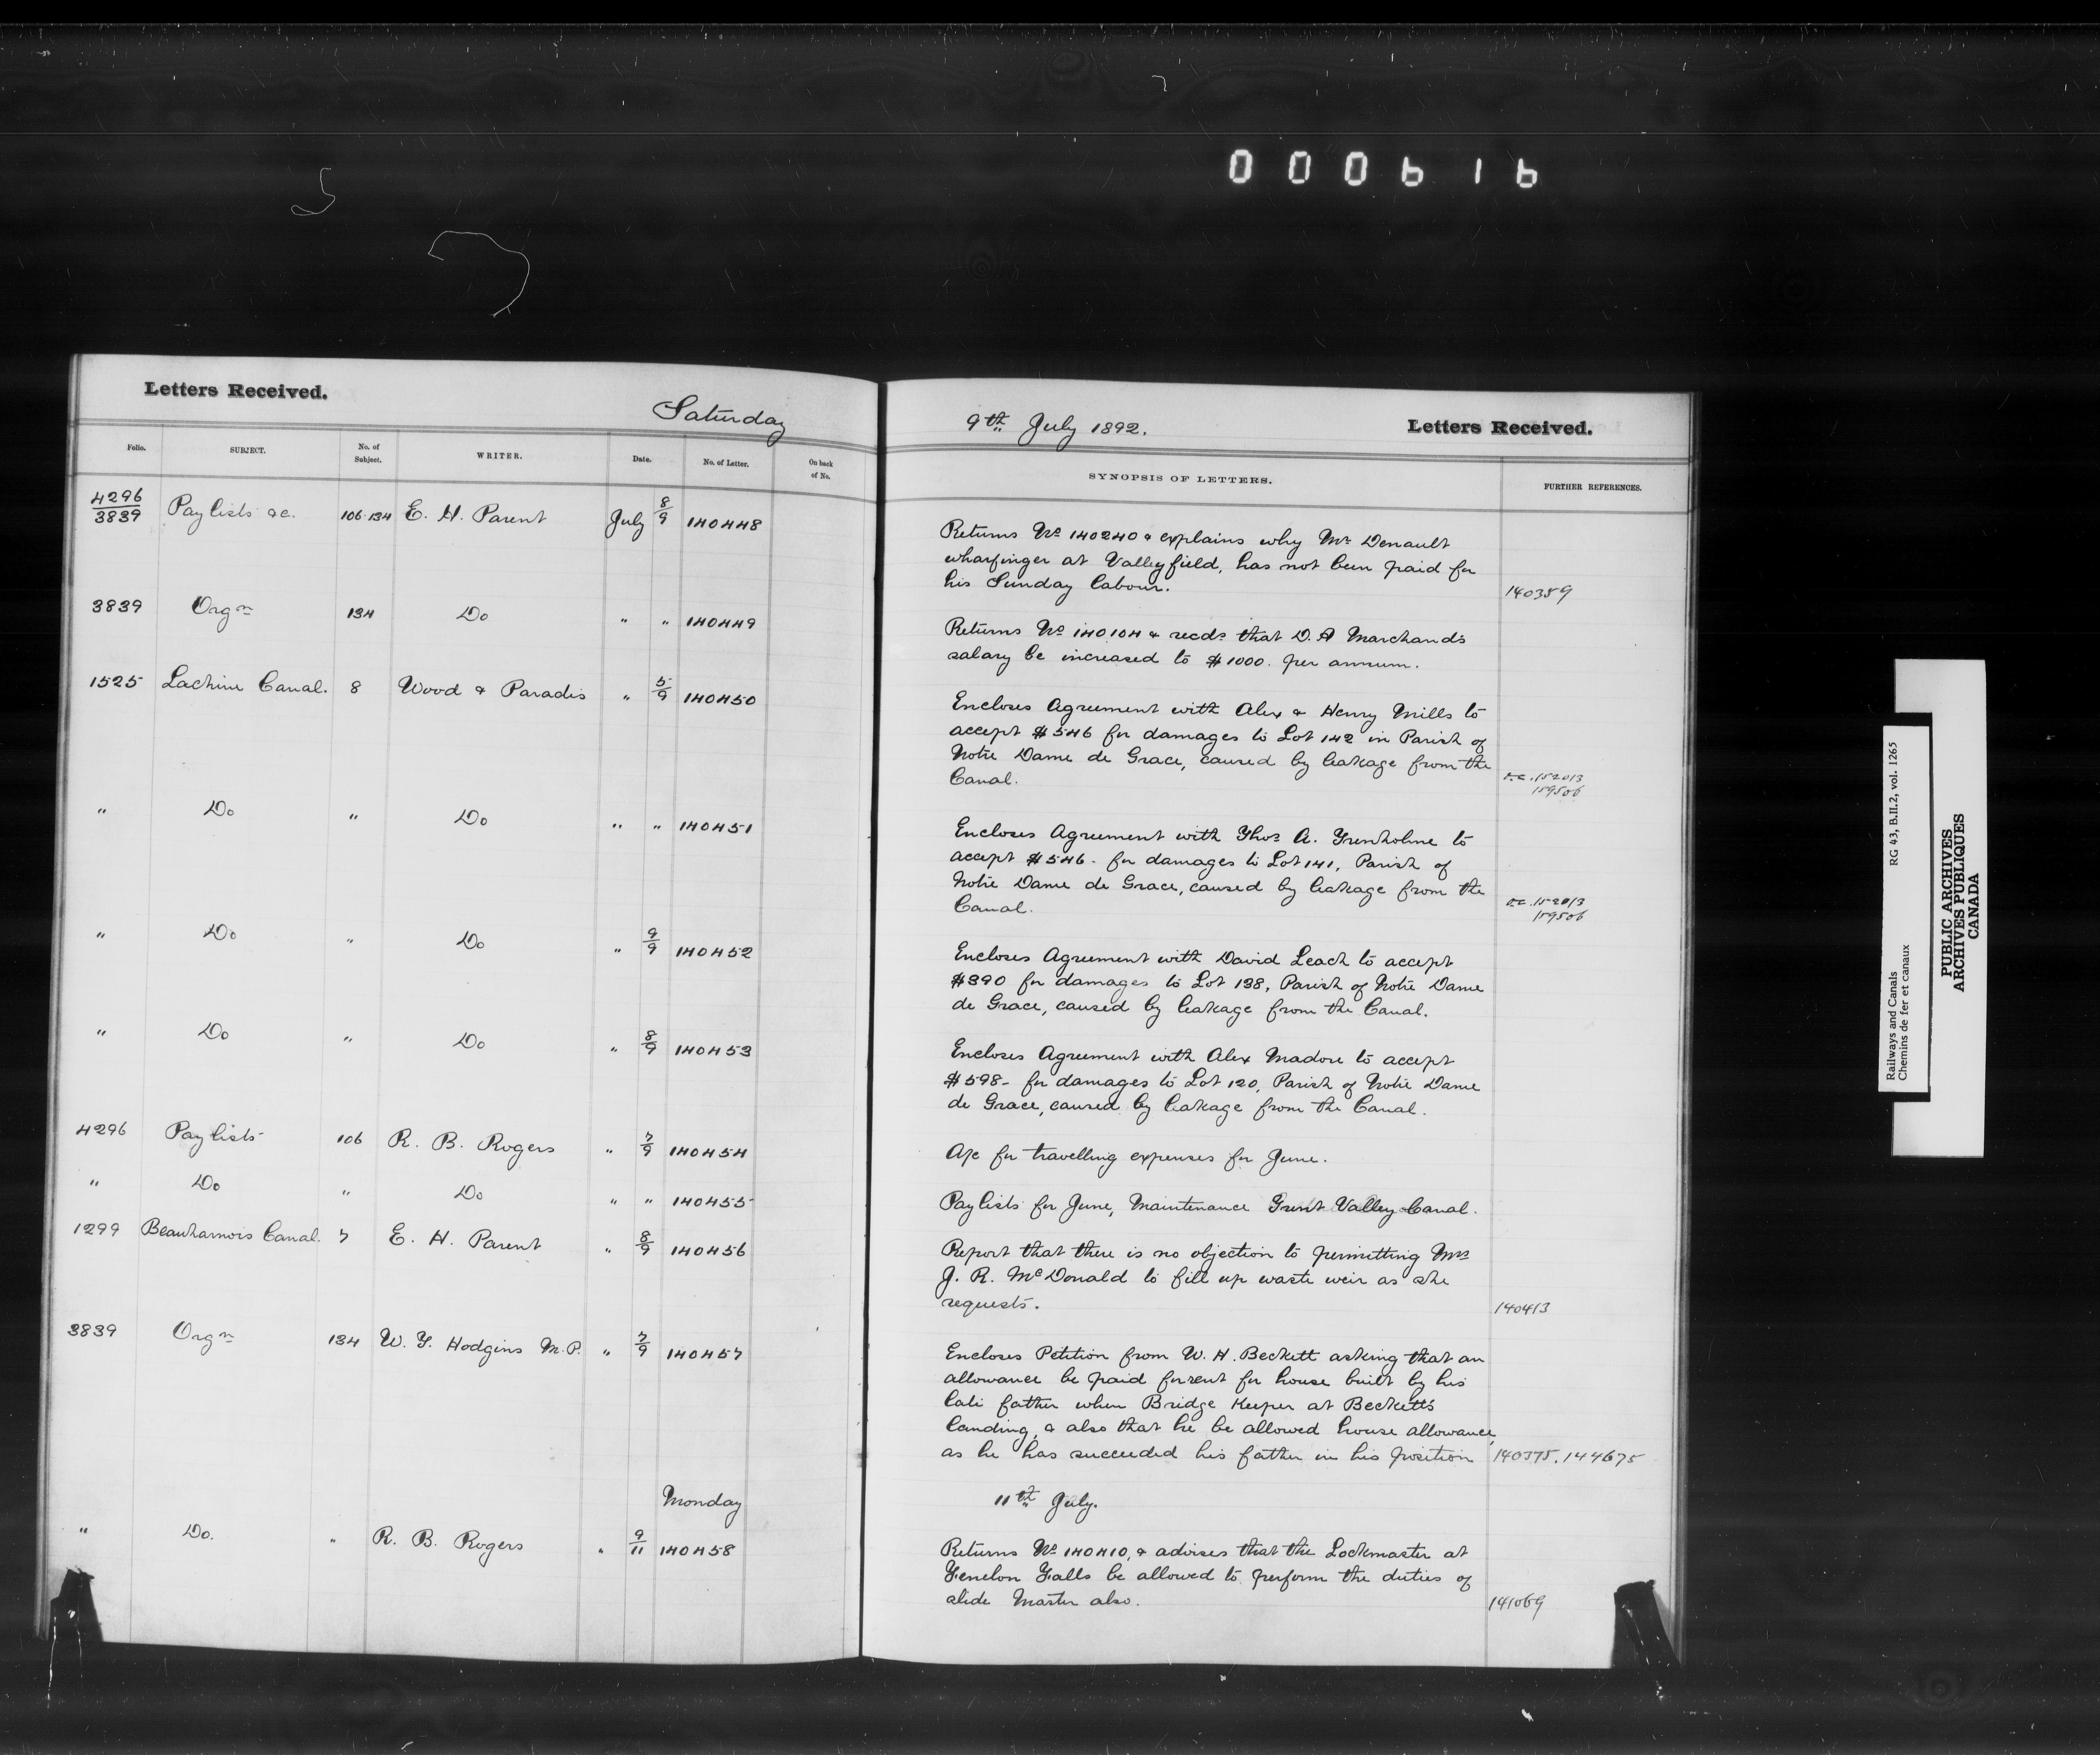 000616
Letters Received.
Saturday
9th July 1892.
Letters Received.
Folio. SUBJECT. No. of Subject. WRITER. Date. No. of Letter. On back of No. SYNOPSIS OF LETTERS. FURTHER REFERENCES.
4296/3839 Paylists &c. 106.134 E. H. Parent July 8/9 140448
Returns No 140240 & explains why Mr Denault
wharfinger at Valleyfield, has not been paid for
his Sunday labour. 140359
3839 Orgn 134 Do " " 140449
Returns No 140104 & recds that D. A Marchand's
salary be increased to $1000. per annum.
1525 Lachine Canal. 8 Wood & Paradis " 5/9 140450
Encloses Agreement with Alex & Henry Mills to
accept $546 for damages to Lot 142 in Parish of
Notre Dame de Grace, caused by leakage from the
Canal. 152013
159506
" Do " Do " " 140451
Encloses Agreement with Thos A. Trenholme to
accept $546 - for damages to Lot 141, Parish of
Notre Dame de Grace, caused by leakage from the
Canal. 152013
159506
" Do " Do " 9/9 140452
Encloses Agreement with David Leach to accept
$390 for damages to Lot 138, Parish of Notre Dame
de Grace, caused by leakage from the Canal.
" Do " Do " 8/9 140453
Encloses Agreement with Alex Madore to accept
$598- for damages to Lot 120, Parish of Notre Dame
de Grace, caused by leakage from the Canal.
4296 Paylists 106 R. B. Rogers " 7/9 140454
A/c for travelling expenses for June.
" Do " Do " " 140455
Paylists for June, Maintenance Trent Valley Canal.
1299 Beauharnois Canal. 7 E. H. Parent " 8/9 140456
Report that there is no objection to permitting Mrs
J. R. McDonald to fill up waste weir as she
requests. 140413
3839 Orgn 134 W. T. Hodgins M.P. " 7/9 140457
Encloses Petition from W. H. Beckett asking that an
allowance be paid for rent for house built by his
late father when Bridge Keeper at Becketts
Landing, & also that he be allowed house allowance,
as he has succeeded his father in his position 140375. 144675
Monday 11th July.
" Do. " R. B. Rogers " 9/11 140458
Returns No 140410, & advises that the Lockmaster at
Fenelon Falls be allowed to perform the duties of
slide Master also. 141069
Railways and Canals RG 43, B.II.2, vol. 1265
Chemins de fer et canaux
PUBLIC ARCHIVES
ARCHIVES PUBLIQUES
CANADA